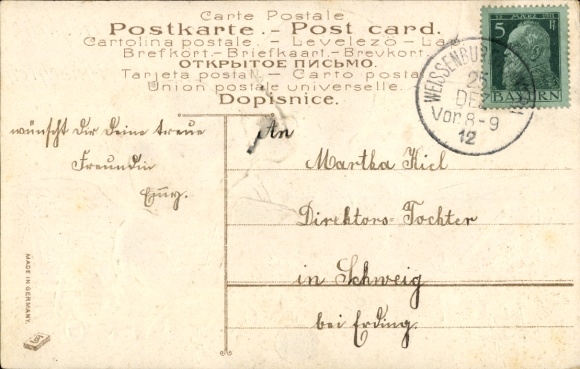 Carte Postale
Postkarte. - Post card.
Cartolina postale. - Levelező - Lap.
Brefkort - Briefkaart - Brevkort.
ОТКРЫТОЕ ПИСЬМО.
Tarjeta postal - Carto postal
Union postale universelle.
Dopisnice.
12. MÄRZ 1911
5 Pf
BAYERN
WEISSENBURG
25
DEZ
Vor. 8-9
12
wünscht Dir Deine treue
Freundin
An
Martha Kiel
Direktors-Tochter
in Schweig
bei Erding.
MADE IN GERMANY.